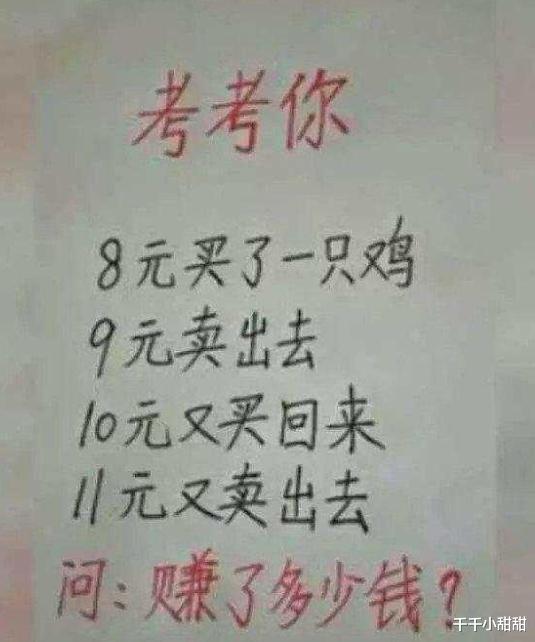 考考你
8元买了一只鸡
9元卖出去
10元又买回来
11元又卖出去
问:赚了多少钱?
干干小甜甜